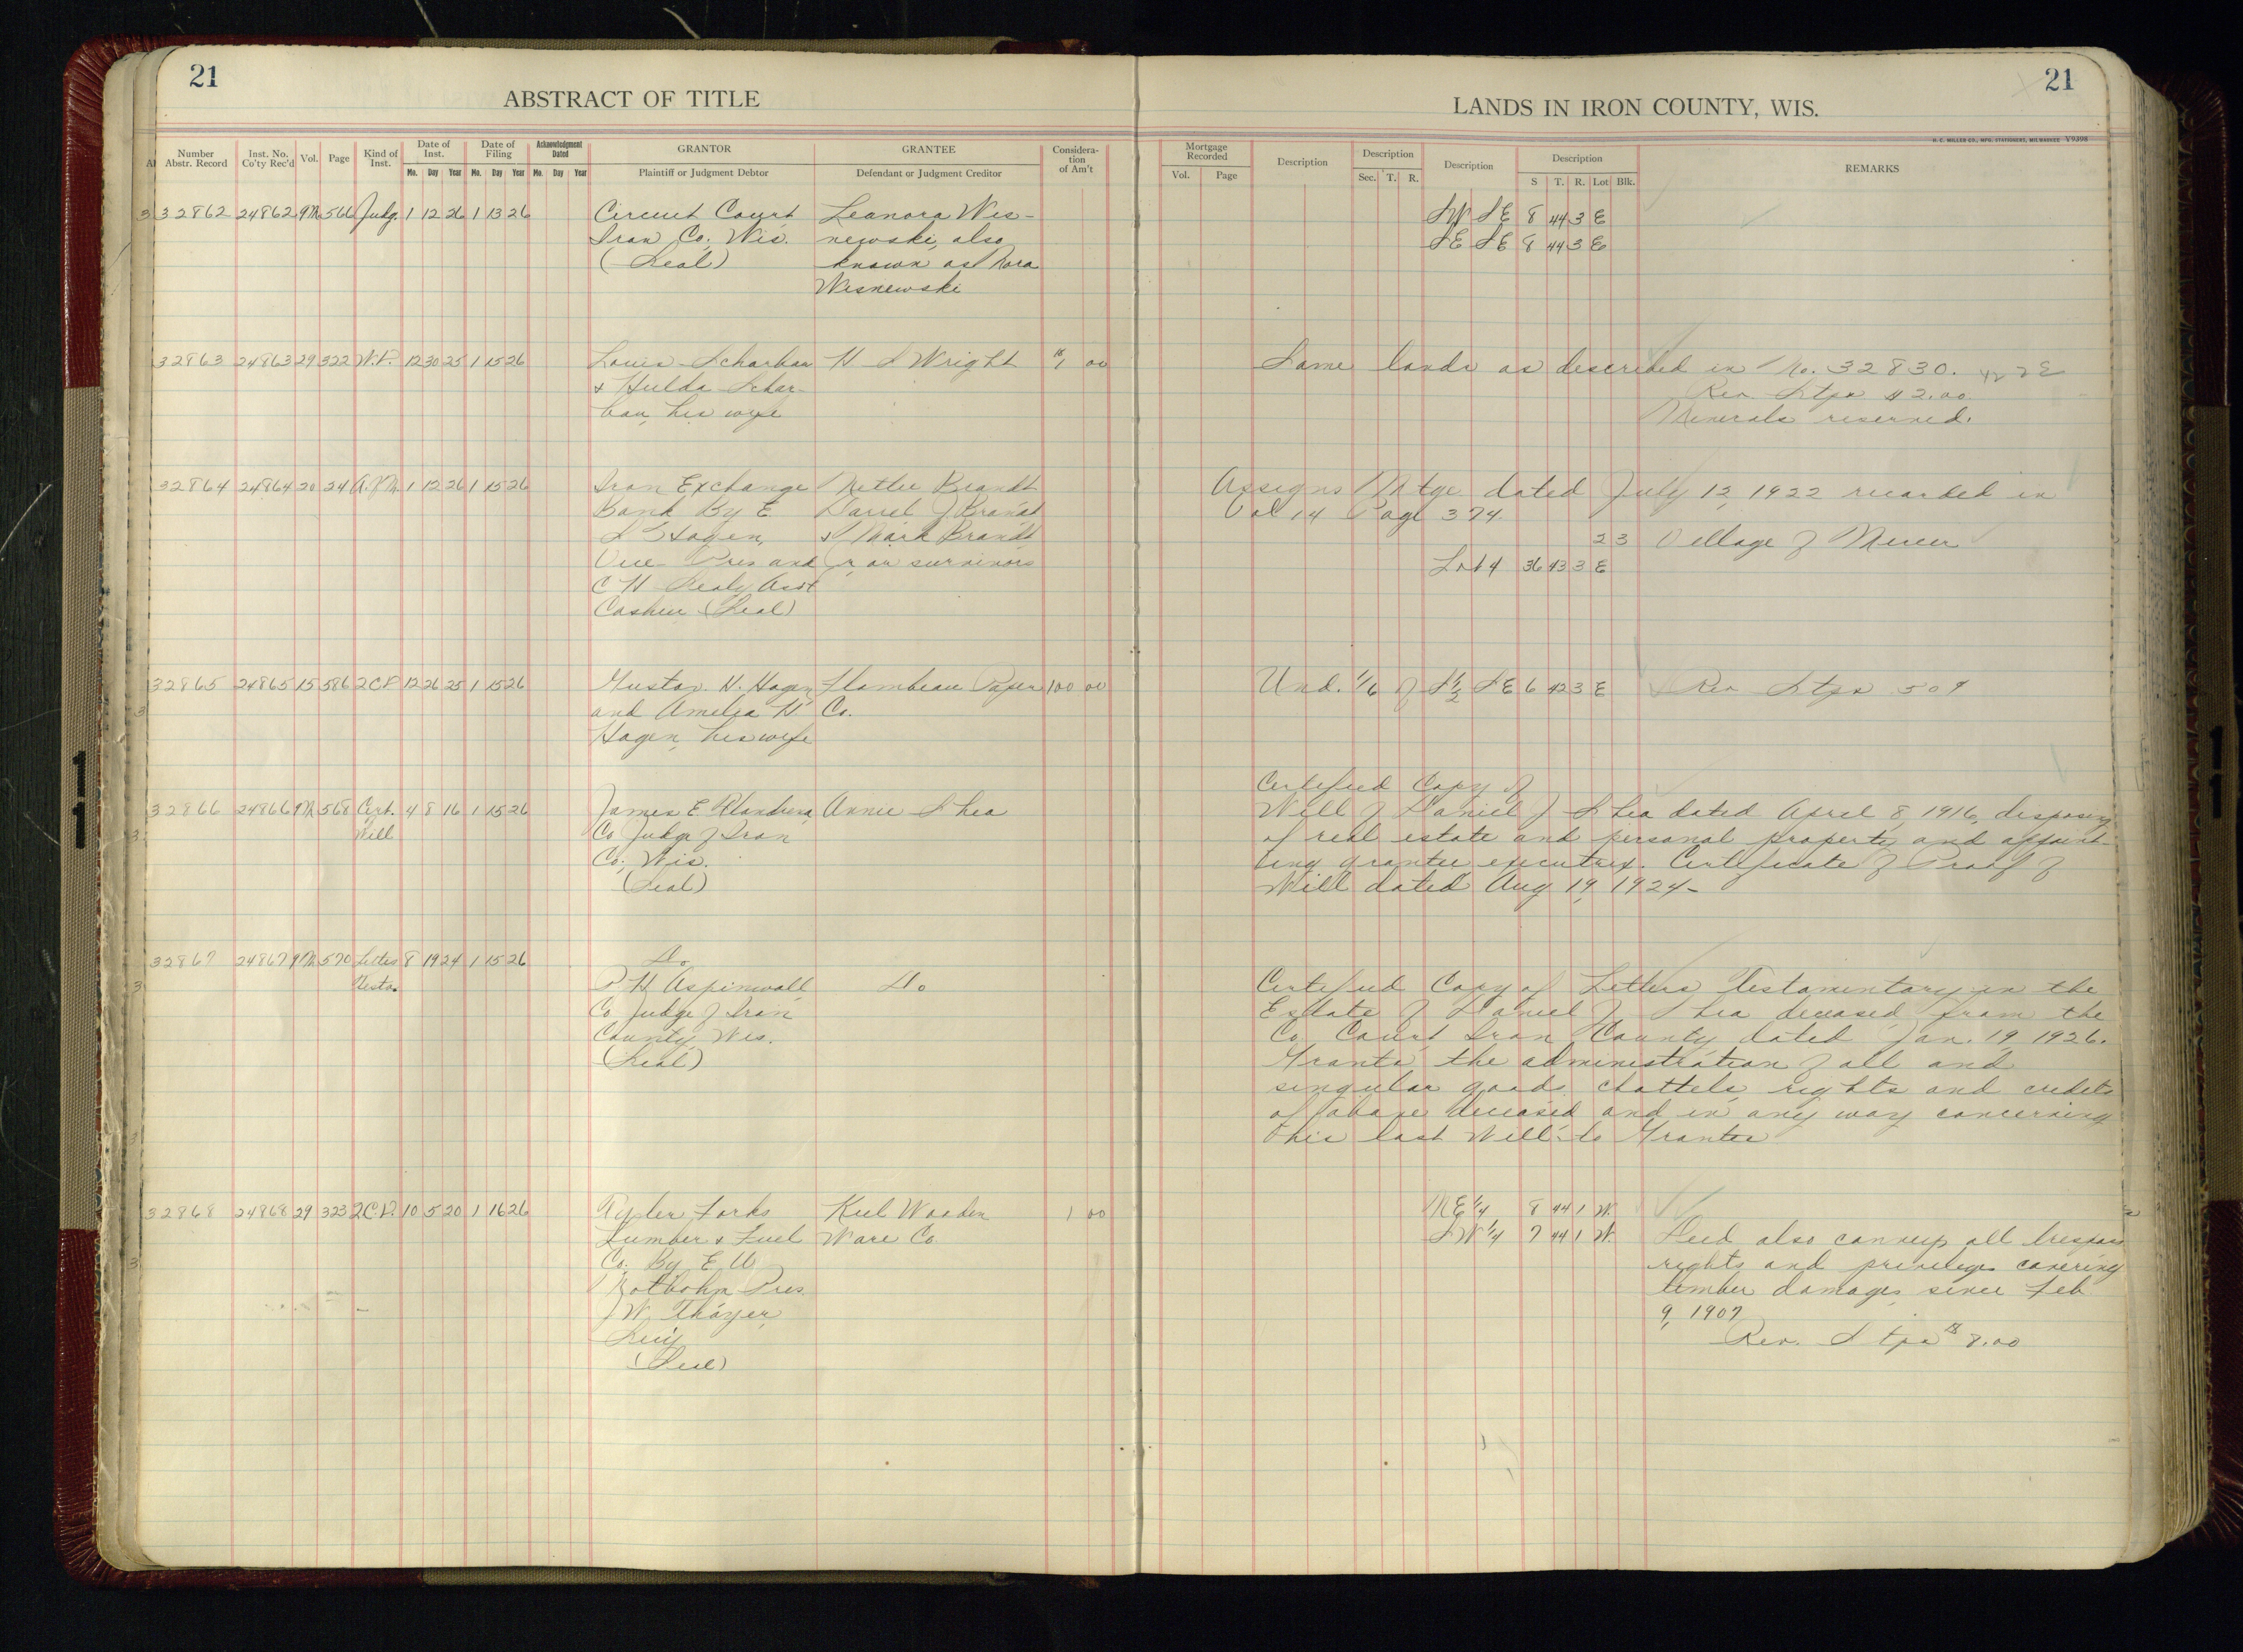 21
ABSTRACT OF TITLE
Number Abstr. Record
Inst. No. Co'ty Rec'd
Vol.
Page
Kind of Inst.
Date of Inst.
Mo. Day Year
Date of Filing
Mo. Day Year
Acknowledgment Dated
Mo. Day Year
GRANTOR
Plaintiff or Judgment Debtor
GRANTEE
Defendant or Judgment Creditor
Consideration of Am't
32862 24862 9M 566 Judg. 1 12 26 1 13 26 Circuit Court Leanora Wis-
Iron Co., Wis. newski, also
(Seal) known as Nora
Wisnewski
32863 24863 29 322 W.D. 12 30 25 1 15 26 Louis Scharbau H S Wright $1 00
& Hulda Schar-
bau, his wife
32864 24864 20 24 A.of M. 1 12 26 1 15 26 Iron Exchange Nettie Brandt
Bank By E Darrel J. Brandt
S Hagen, & Mark Brandt
Vice Pres and or survivors
C H Sealy Asst
Cashier (Seal)
32865 24865 15 586 2CD 12 26 25 1 15 26 Gustav. H. Hagen Flambeau Paper 100 00
and Amelia H Co.
Hagen, his wife
32866 24866 9M 568 Cert. 4 8 16 1 15 26 James E Annie Shea
Will Co Judge of Iron
Co., Wis.
(Seal)
32867 24867 9M 570 Letters 8 19 24 1 15 26 Do
Testa. R H Aspinwall Do
Co Judge of Iron
County, Wis.
(Seal)
32868 24868 29 323 2CD. 10 5 20 1 16 26 Tyler Forks Kiel Wooden 1 00
Lumber & Fuel Ware Co
Co. By E A
Rotbohm Pres
J W Thayer,
Secy
(Seal)
21
LANDS IN IRON COUNTY, WIS.
H. C. MILLER CO., MFG. STATIONERS, MILWAUKEE V9398
Mortgage Recorded
Vol. Page
Description
Description
Sec. T. R.
Description
Description
S T. R. Lot Blk.
REMARKS
SW SE 8 44 3 E
SE SE 8 44 3 E
Same lands as described in No. 32830. 42 2E
Rev Stps $2.00
Minerals reserved.
Assigns Mtge dated July 12, 1922 recorded in
Vol 14 Page 374
23 Village of Mercer
Lot 4 36 43 3 E
Und. 1/6 of S 1/2 SE 6 42 3 E Rev Stps 50¢
Certified Copy of
Will of Daniel J Shea dated April 8, 1916, disposing
of real estate and personal property and appoint-
ing grantee executrix. Certificate of Proof of
Will dated Aug 19, 1924-
Certified Copy of Letters Testamentary in the
Estate of Daniel J Shea deceased from the
Co Court Iron County dated Jan. 19, 1926.
Grants the administration of all and
singular goods, chattels, rights and credits
of above deceased and in any way concerning
this last Will to Grantee
NE 1/4 8 44 1 W.
SW 1/4 7 44 1 W. Deed also conveys all trespass
rights and privileges covering
timber damages since Feb
9, 1907
Rev. Stps $8.00